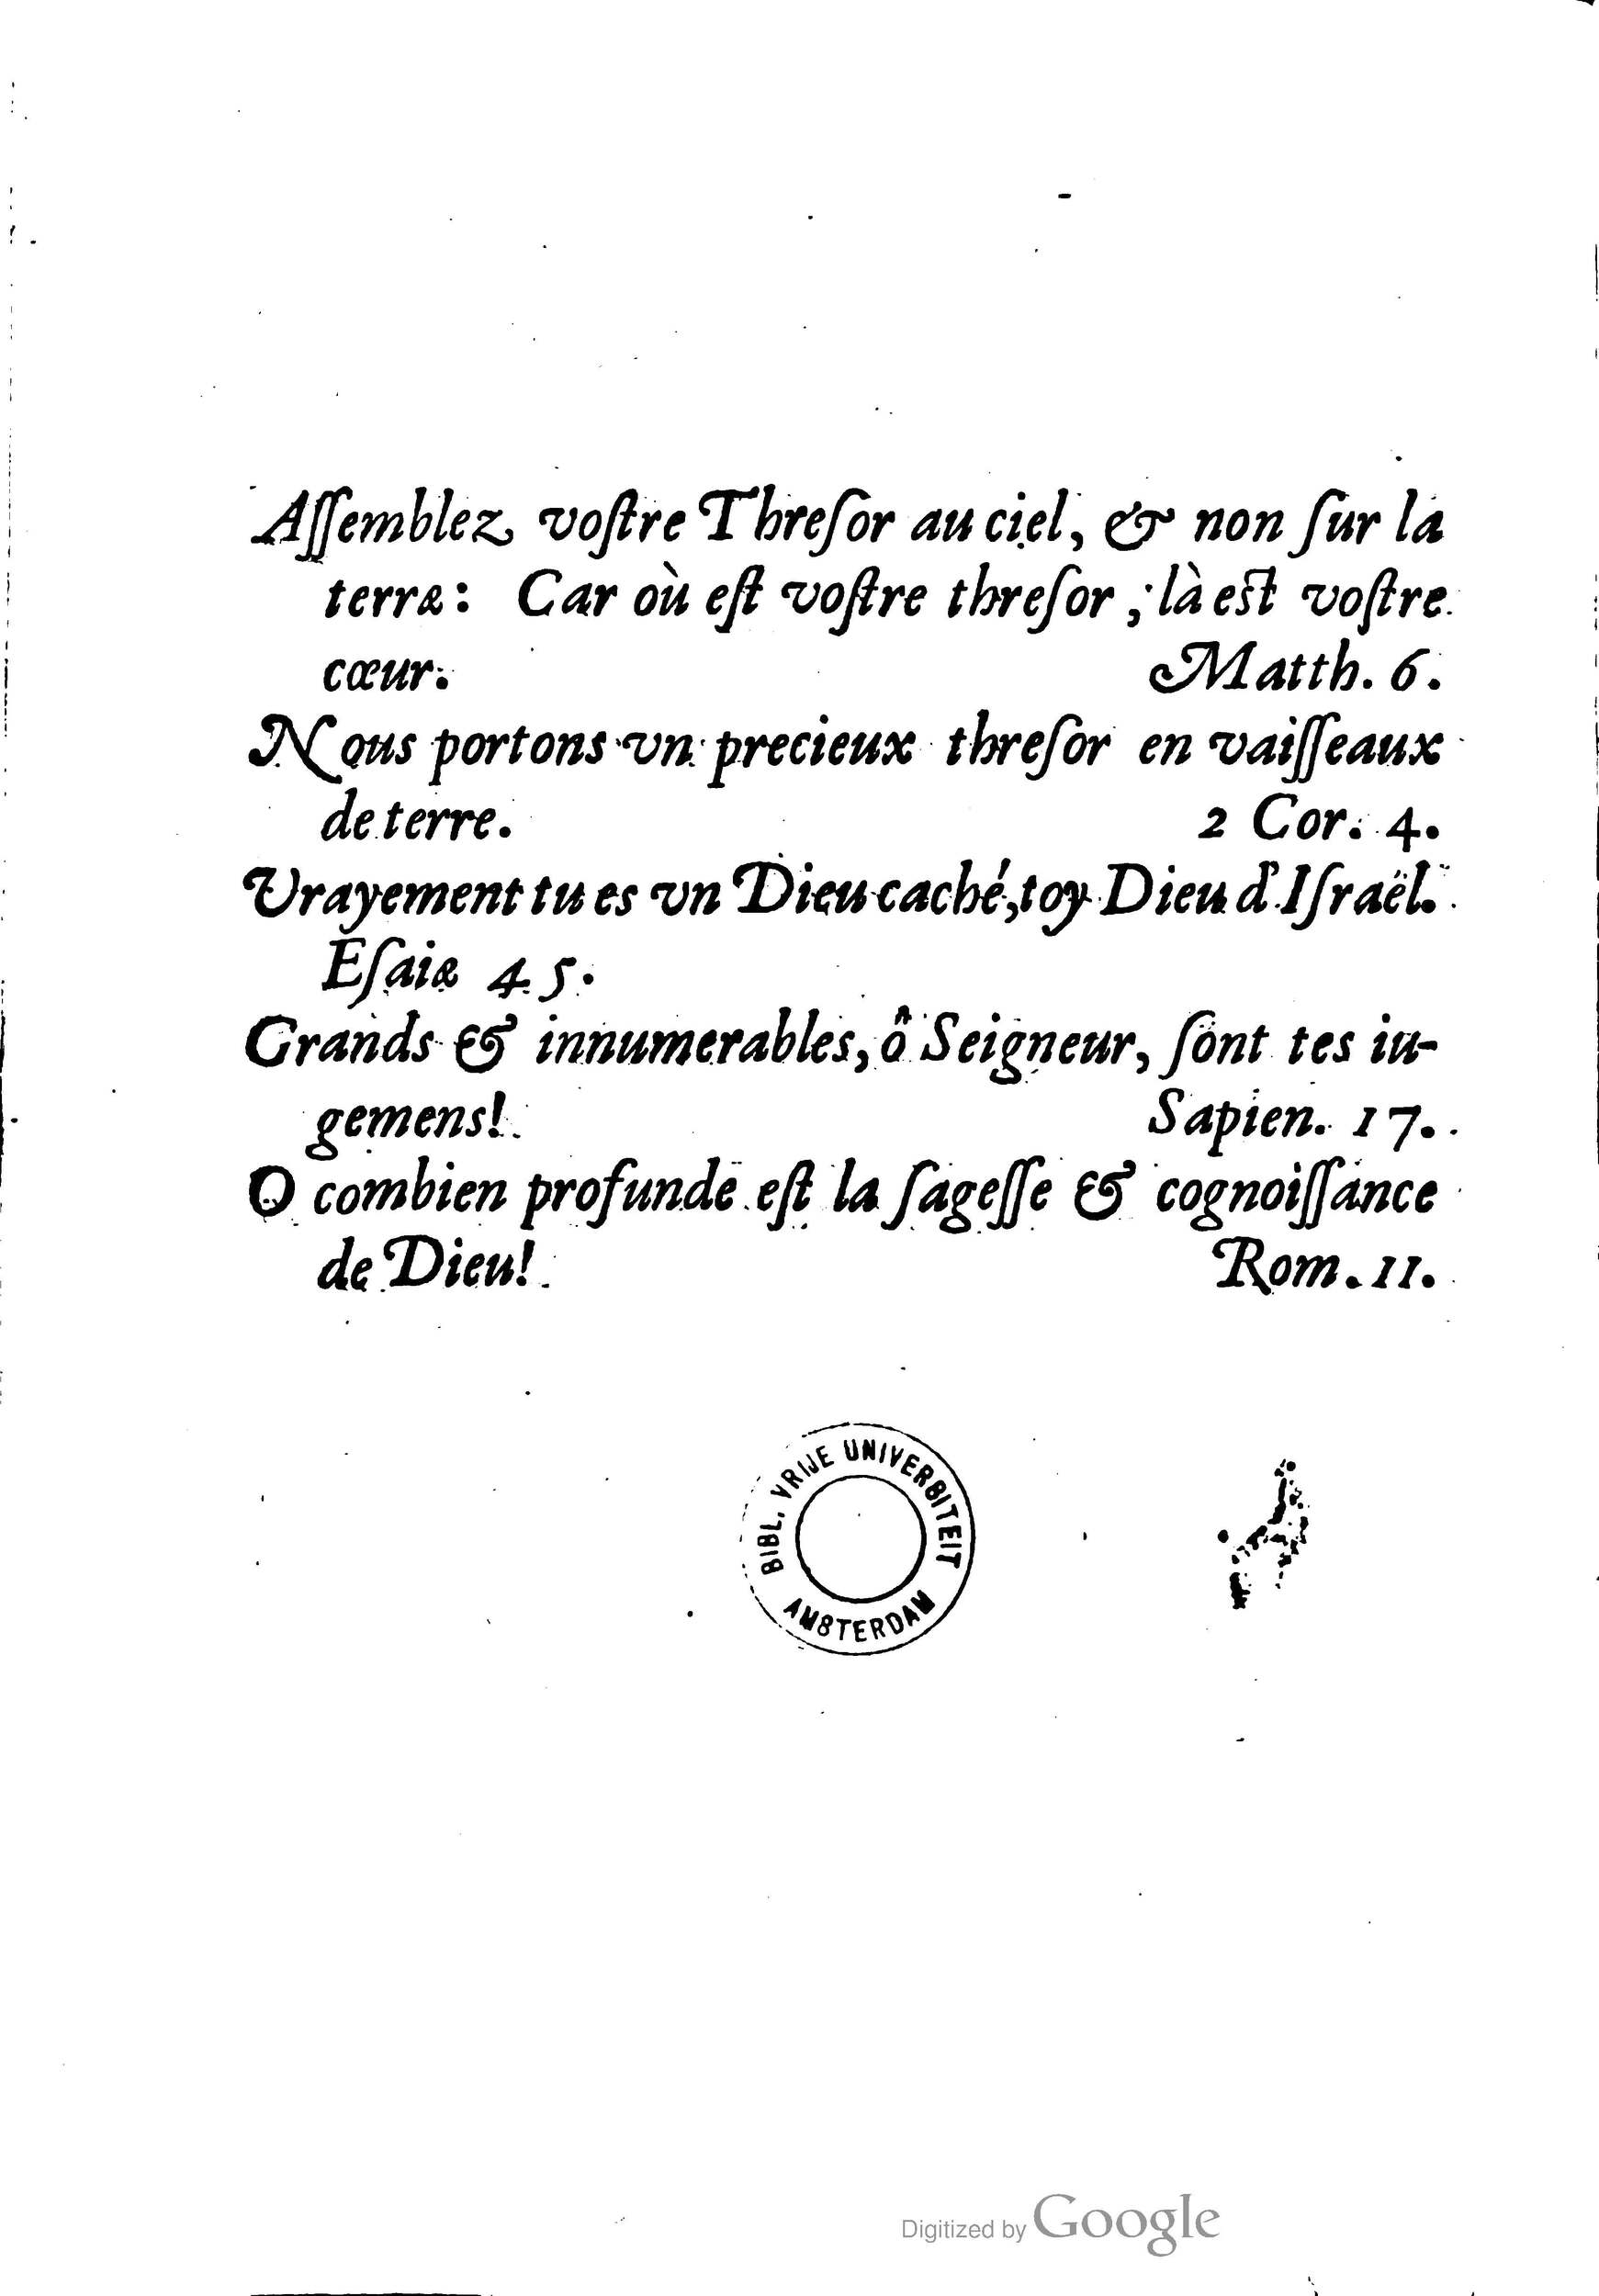 Aſſemblez voſtre Threſor au ciel, & non ſur la
terre: Car où eſt voſtre threſor ; là eſt voſtre
cœur. Matth. 6.
Nous portons vn precieux threſor en vaiſſeaux
de terre. 2 Cor. 4.
Vrayement tu es vn Dieu caché, toy Dieu d'Iſraël.
Eſaie 45.
Grands & innumerables, ô Seigneur, ſont tes iu-
gemens! Sapien. 17.
O combien profunde eſt la ſageſſe & cognoiſſance
de Dieu! Rom. 11.
BIBL. VRIJE UNIVERSITEIT
AMSTERDAM
Digitized by Google